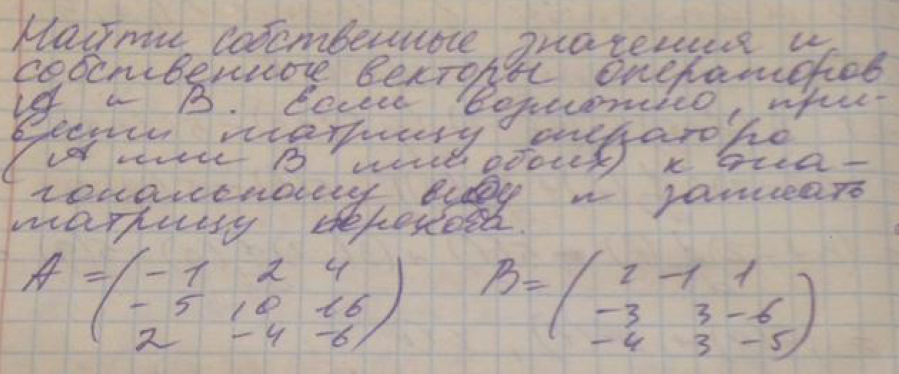 Найти собственные значения и
собственные векторы операторов
A и B. Если возможно, при-
вести матрицу оператора
(A или B или обоих) к диа-
гональному виду и записать
матрицу перехода.
A = ( -1 2 4 B = ( 2 -1 1
-5 10 16 ) -3 3 -6 )
2 -4 -6 -4 3 -5